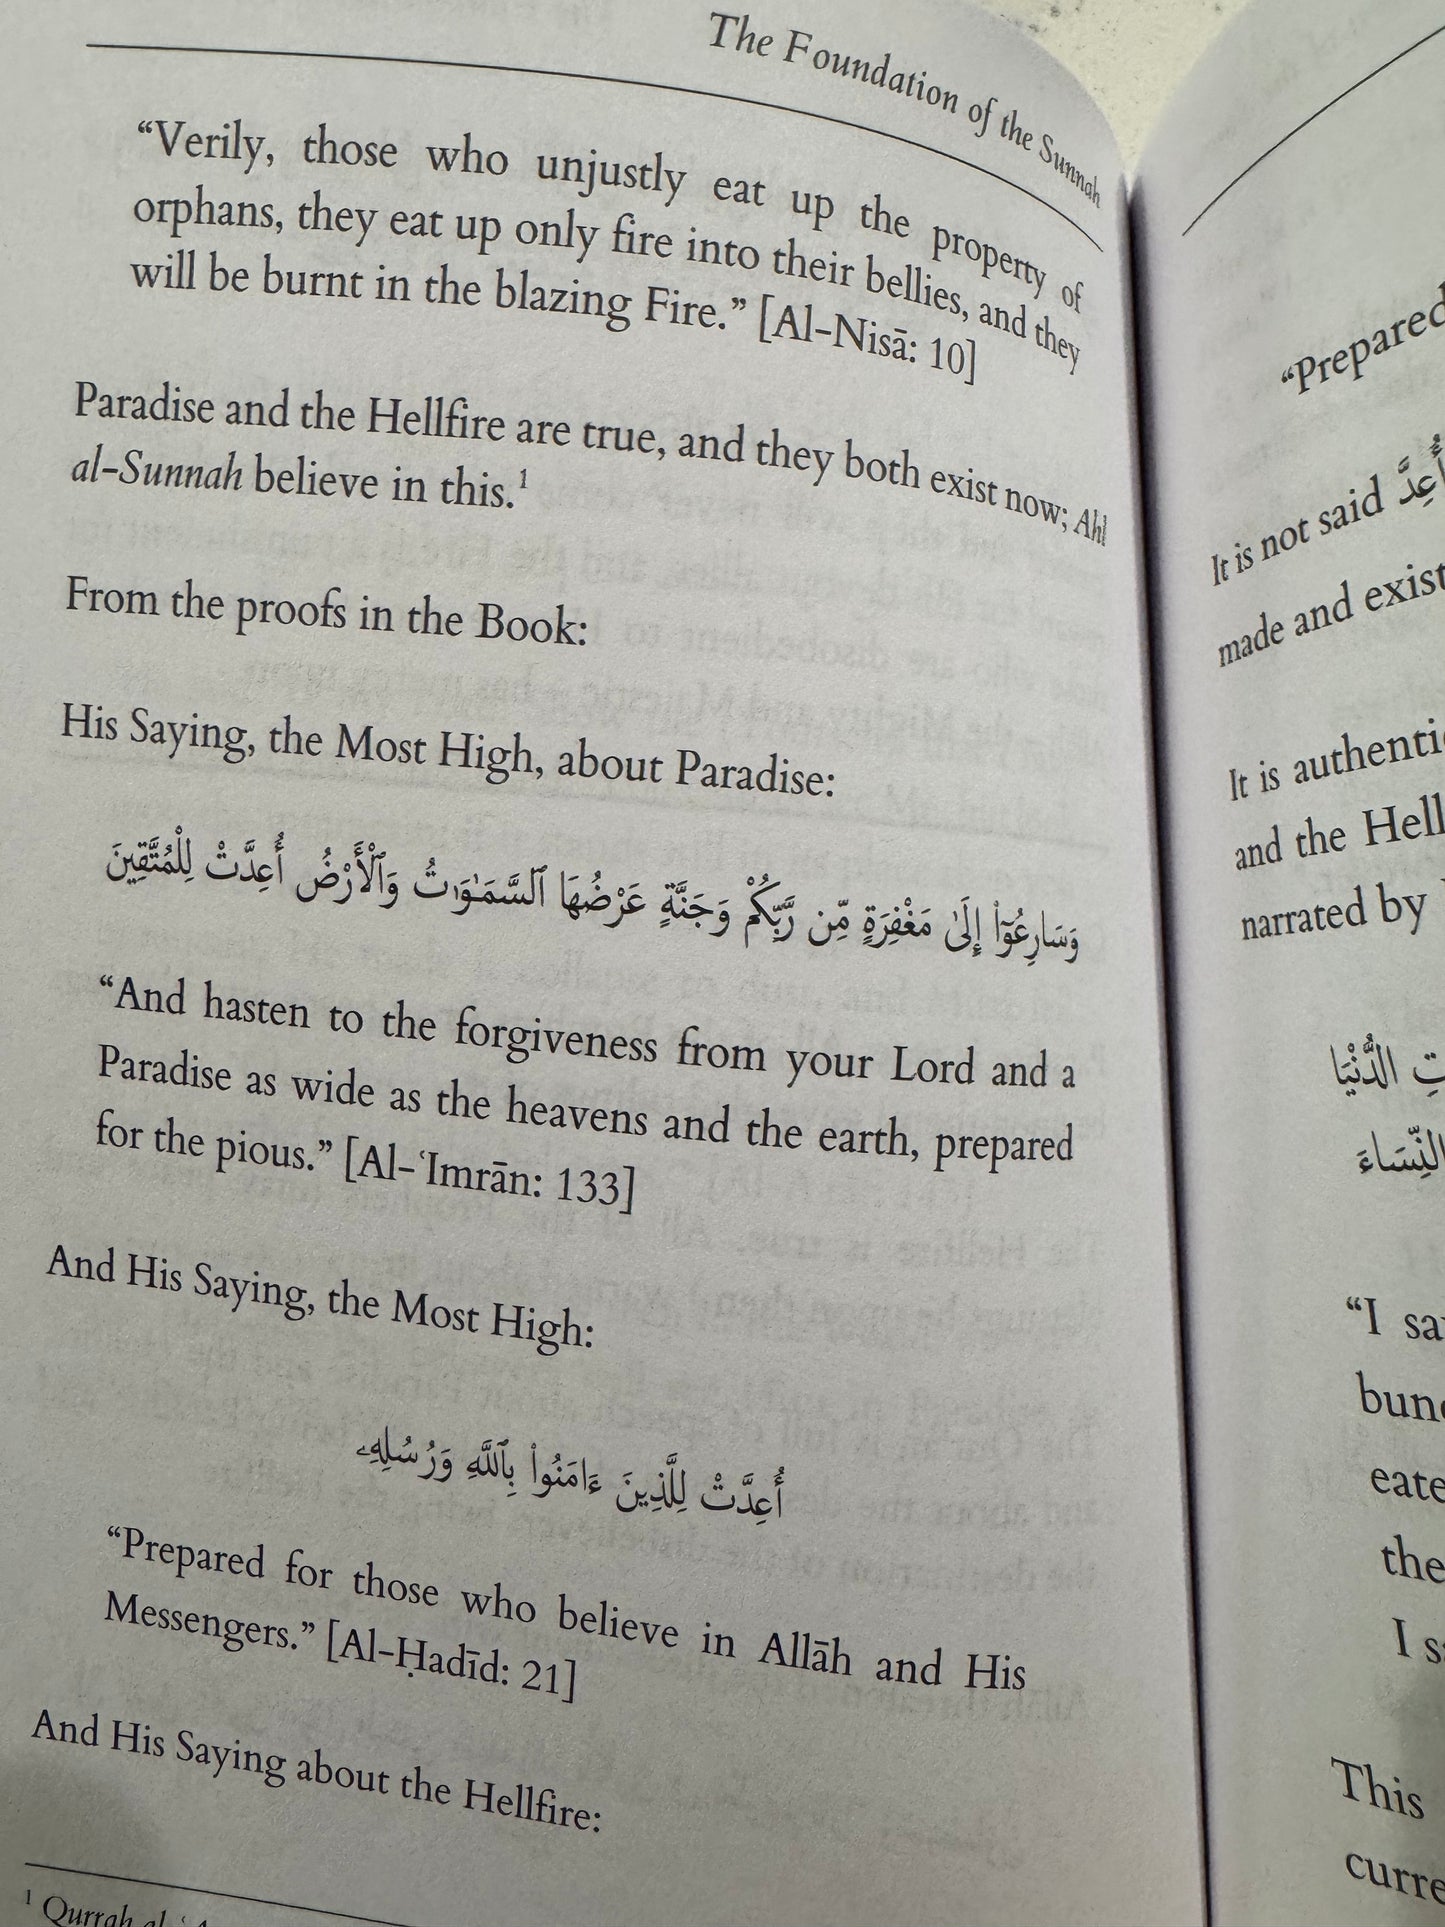 The Foundation of the Sunnah
“Verily, those who unjustly eat up the property of
orphans, they eat up only fire into their bellies, and they
will be burnt in the blazing Fire.” [Al-Nisā: 10]
Paradise and the Hellfire are true, and they both exist now; Ahl
al-Sunnah believe in this.¹
From the proofs in the Book:
His Saying, the Most High, about Paradise:
وَسَارِعُوٓا۟ إِلَىٰ مَغْفِرَةٍ مِّن رَّبِّكُمْ وَجَنَّةٍ عَرْضُهَا ٱلسَّمَـٰوَٰتُ وَٱلْأَرْضُ أُعِدَّتْ لِلْمُتَّقِينَ
“And hasten to the forgiveness from your Lord and a
Paradise as wide as the heavens and the earth, prepared
for the pious.” [Al-ʿImrān: 133]
And His Saying, the Most High:
أُعِدَّتْ لِلَّذِينَ ءَامَنُوا۟ بِٱللَّهِ وَرُسُلِهِۦ
“Prepared for those who believe in Allāh and His
Messengers.” [Al-Ḥadīd: 21]
And His Saying about the Hellfire:
¹ Qurrah al-ʿ
“Prepared
It is not said أُعِدَّ
made and exist
It is authenti
and the Hell
narrated by
تِ الدُّنْيَا
النِّسَاءَ
“I sa
bun
eate
the
I s
This
curre